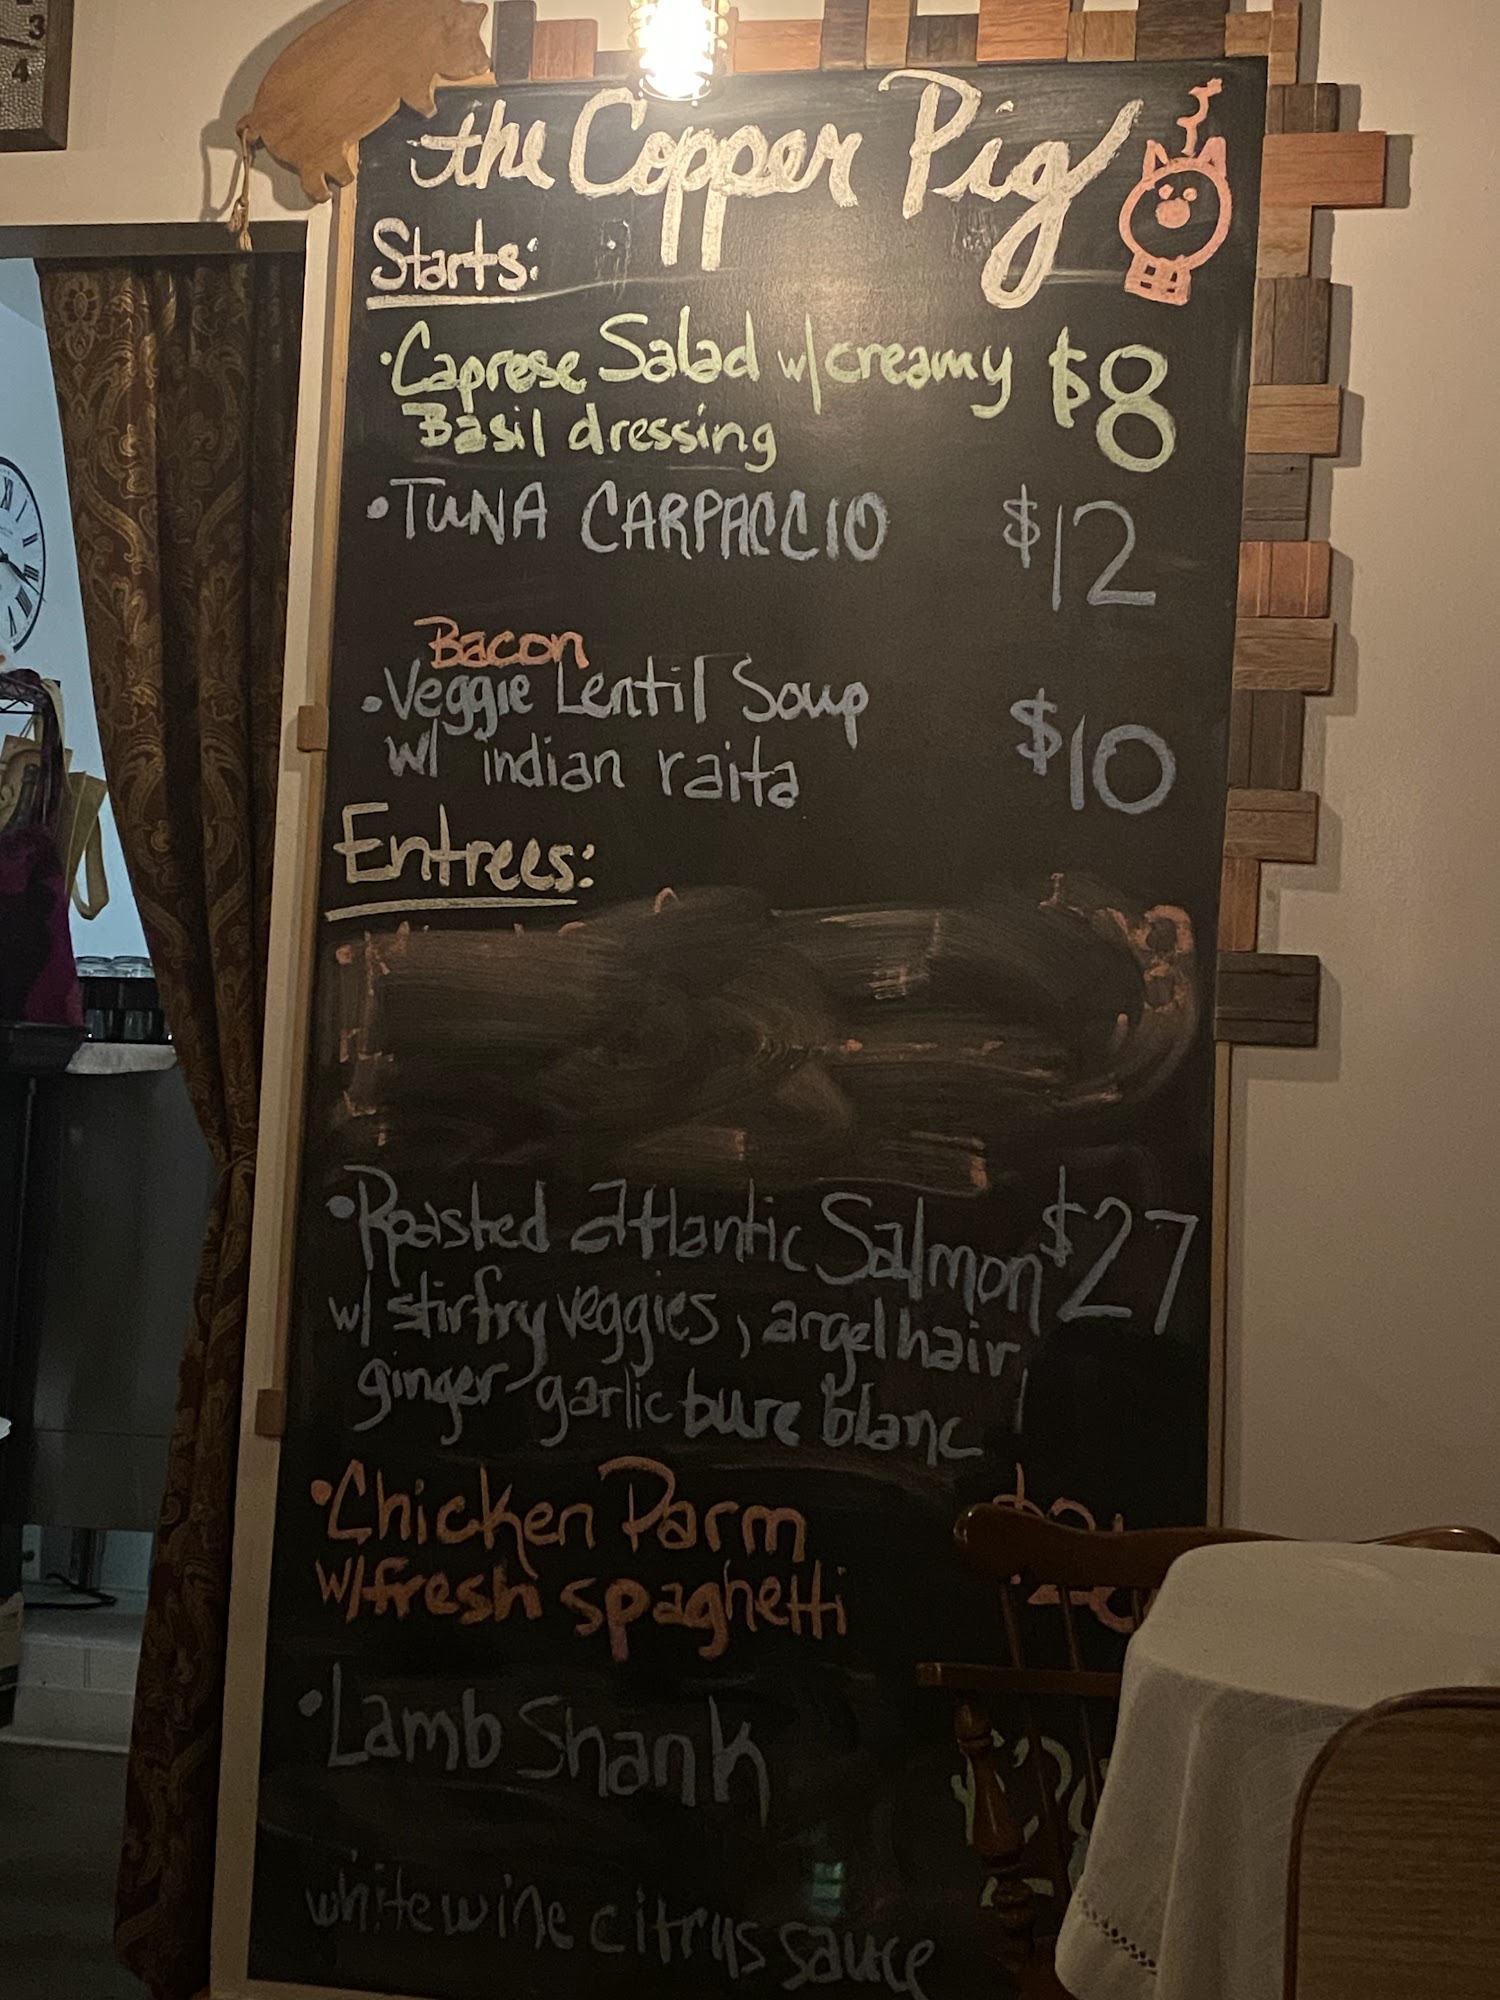 3
4
the Copper Pig
Starts:
• Caprese Salad w/creamy $8
Basil dressing
• TUNA CARPACCIO $12
Bacon
• Veggie Lentil Soup
w/ indian raita $10
Entrees:
• Roasted atlantic Salmon $27
w/ stirfry veggies, angel hair,
ginger garlic bure blanc
• Chicken Parm
w/fresh spaghetti
• Lamb Shank
white wine citrus sauce